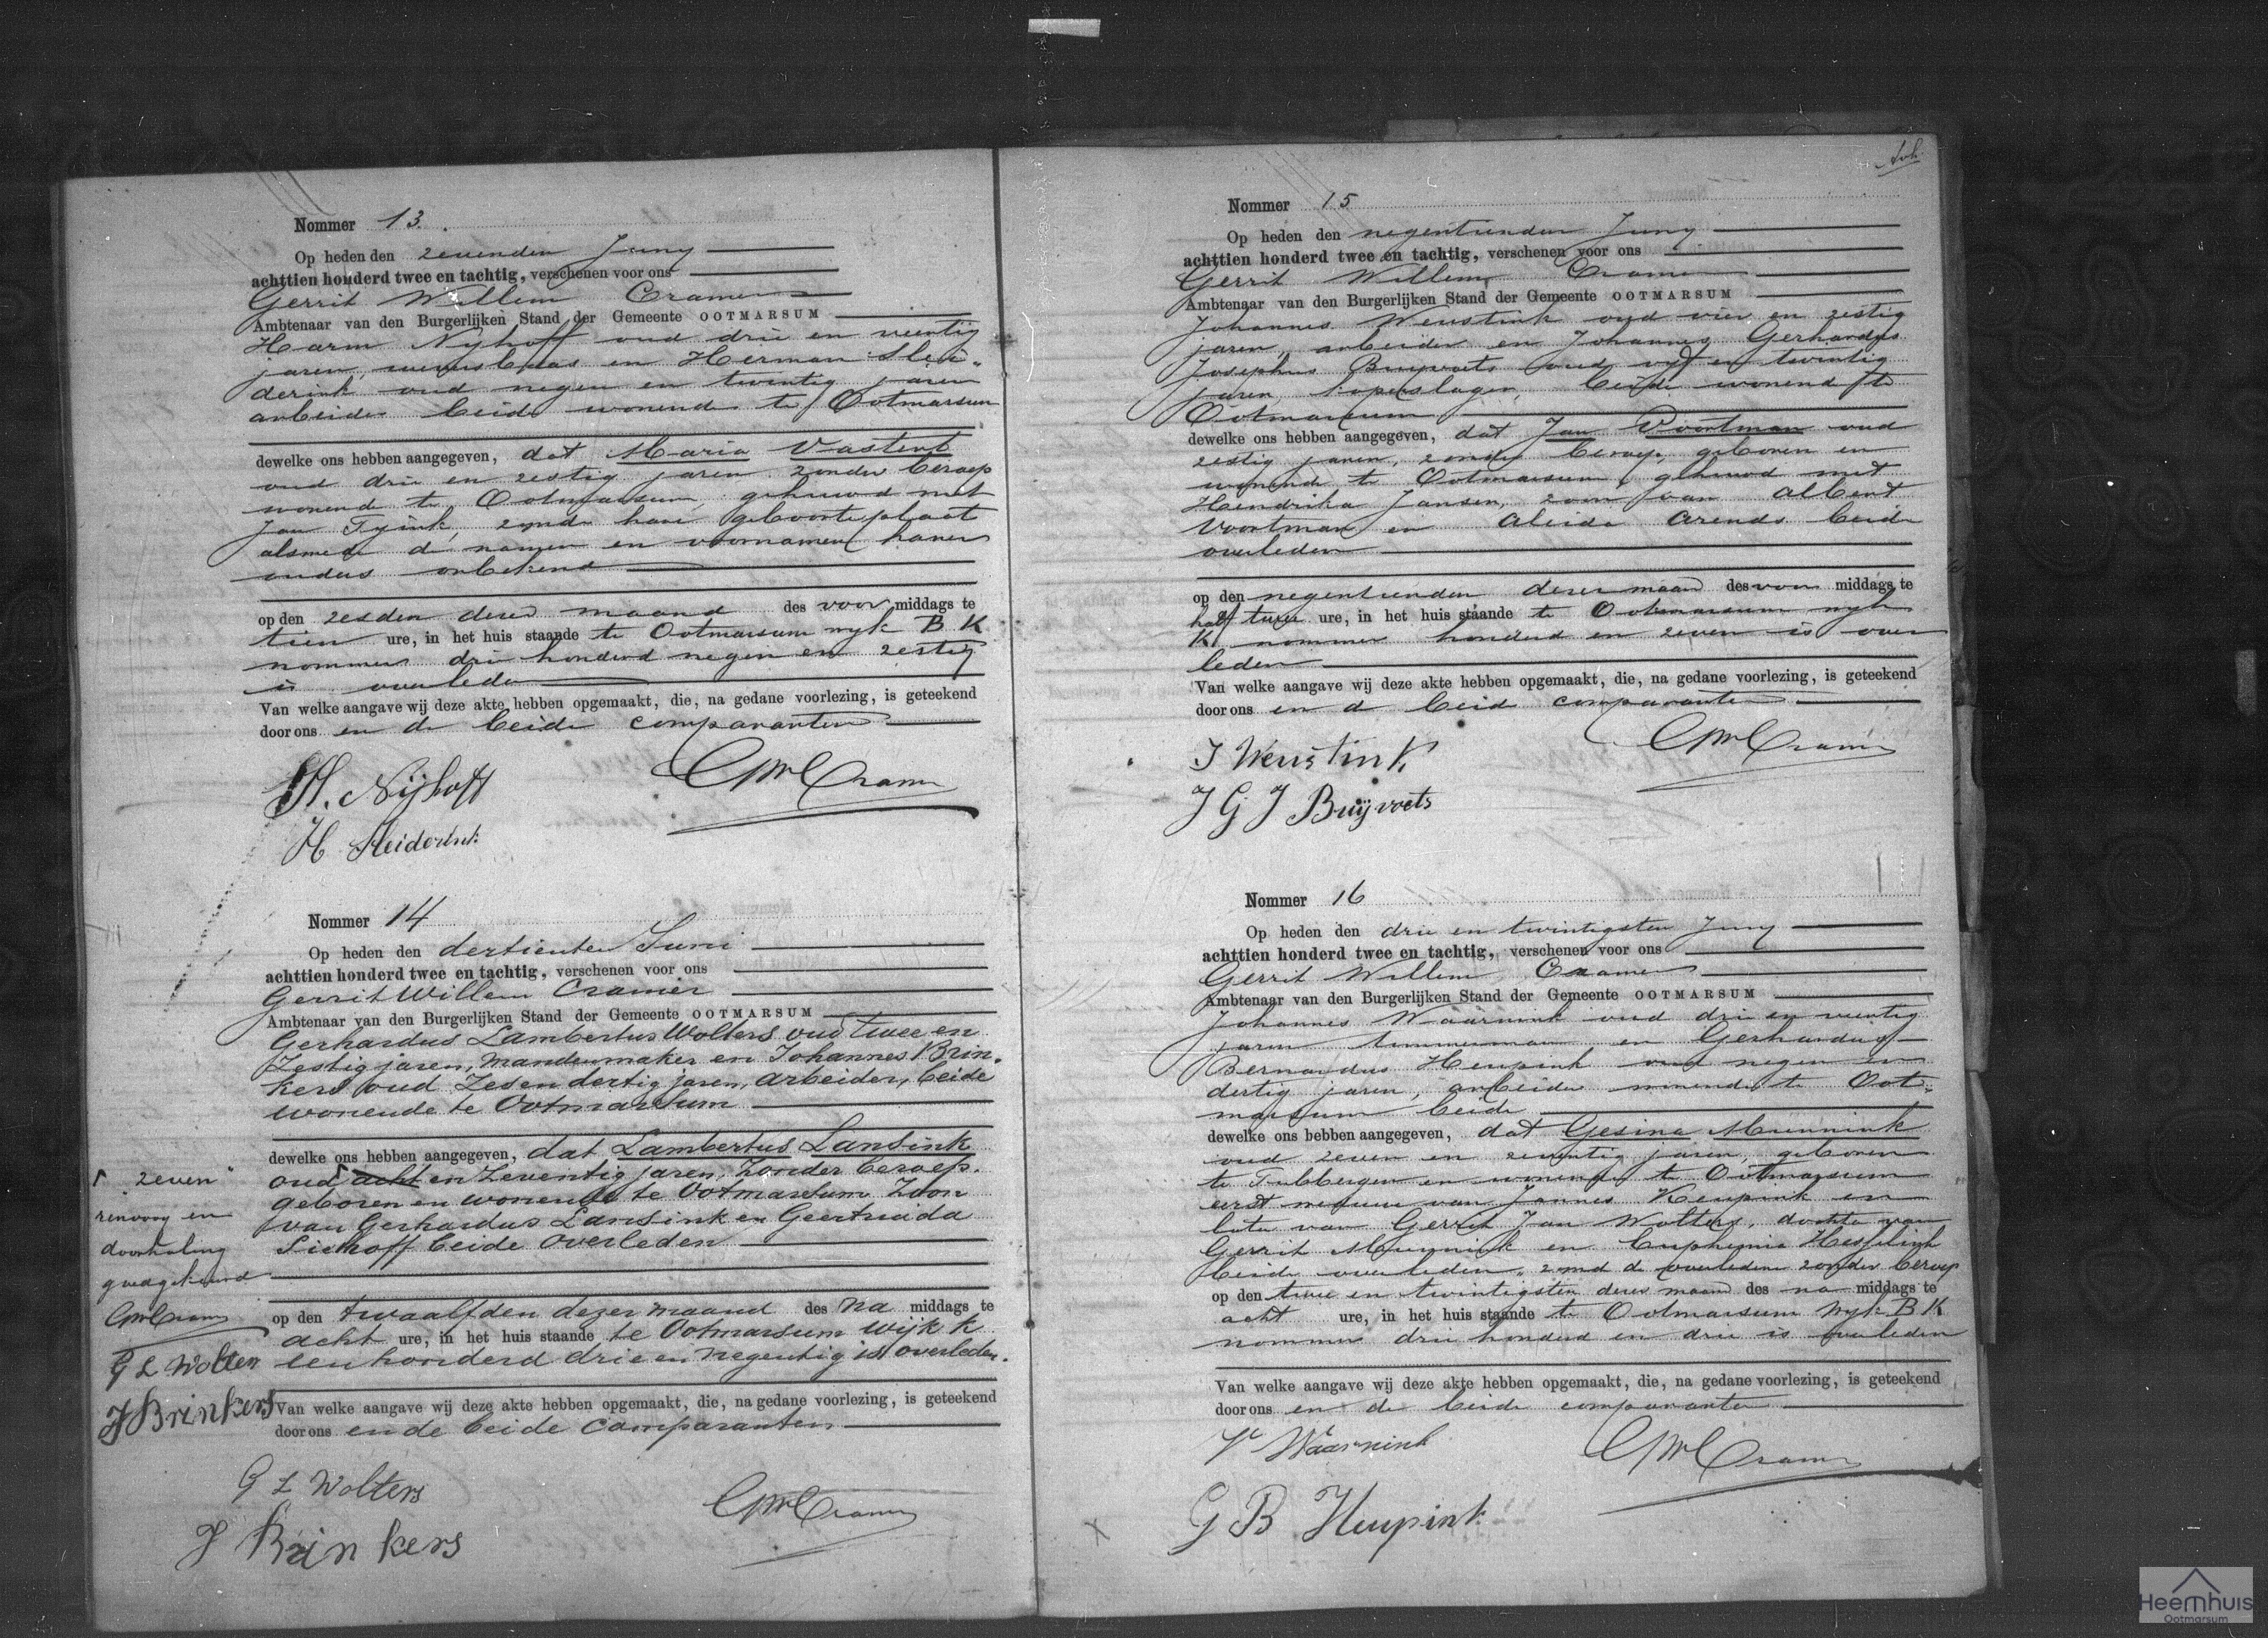 Nommer 13.
Op heden den zevenden Juny
achttien honderd twee en tachtig, verschenen voor ons
Gerrit Willem Cramer
Ambtenaar van den Burgerlijken Stand der Gemeente OOTMARSUM
Harm Nyhoff oud drie en veertig
jaren, weversbaas en Herman Slei„
derink oud negen en twintig jaren
arbeider beide wonende te Ootmarsum
dewelke ons hebben aangegeven, dat Maria Vastert
oud drie en zestig jaren zonder beroep
wonende te Ootmarsum, gehuwd met
Jan Tyink, zynde hare geboorteplaats
alsmede de namen en voornamen harer
ouders onbekend
op den zesden dezer maand des voor middags te
tien ure, in het huis staande te Ootmarsum wyk B K
nommer drie honderd negen en zestig
is overleden
Van welke aangave wij deze akte hebben opgemaakt, die, na gedane voorlezing, is geteekend
door ons en de beide comparanten
H. Nijhoff
GWCramer
H Sleiderink
Nommer 14
Op heden den dertienden Juni
achttien honderd twee en tachtig, verschenen voor ons
Gerrit Willem Cramer
Ambtenaar van den Burgerlijken Stand der Gemeente OOTMARSUM
Gerhardus Lambertus Wolters oud twee en
Zestig jaren, mandenmaker en Johannes Brin„
kers oud Zes en dertig jaren, arbeider, beide
wonende te Ootmarsum
dewelke ons hebben aangegeven, dat Lambertus Lansink
oud acht en Zeventig jaren, Zonder beroep.
geboren en wonende te Ootmarsum Zoon
van Gerhardus Lansink en Geertruida
beide overleden
op den twaalfden dezer maand des Na middags te
acht ure, in het huis staande te Ootmarsum Wijk K
een honderd drie en negentig is overleden.
Van welke aangave wij deze akte hebben opgemaakt, die, na gedane voorlezing, is geteekend
door ons en de beide comparanten
zeven
renvooy en
doorhaling
goedgekeurd
GWCramer
G L Wolters
J Brinkers
G L Wolters
GWCramer
J Brinkers
Nommer 15
Op heden den negentienden Juny
achttien honderd twee en tachtig, verschenen voor ons
Gerrit Willem Cramer
Ambtenaar van den Burgerlijken Stand der Gemeente OOTMARSUM
Johannes Weustink oud vier en zestig
jaren, arbeider en Johannes Gerhardus
Josephus Bruyvoets oud vyf en twintig
jaren, koperslager, beide wonende te
Ootmarsum
dewelke ons hebben aangegeven, dat Jan Voortman oud
zestig jaren, zonder beroep, geboren en
wonende te Ootmarsum, gehuwd met
Hendrika Jansen, zoon van Albert
Voortman en Aleida Arends beide
overleden
op den negentienden dezer maand des voor middags te
half twee ure, in het huis staande te Ootmarsum wyk
K nommer honderd en zeven is over
leden
Van welke aangave wij deze akte hebben opgemaakt, die, na gedane voorlezing, is geteekend
door ons en de beide comparanten
J Weustink
GWCramer
J G J Bruijvoets
Nommer 16
Op heden den drie en twintigsten Juny
achttien honderd twee en tachtig, verschenen voor ons
Gerrit Willem Cramer
Ambtenaar van den Burgerlijken Stand der Gemeente OOTMARSUM
Johannes Waarnink oud drie en veertig
jaren timmerman en Gerhardus
Bernardus Heupink oud negen en
dertig jaren, arbeider wonende te Oot„
marsum beide
dewelke ons hebben aangegeven, dat Gesina Munnink
oud zeven en zeventig jaren, geboren
te Tubbergen en wonende te Ootmarsum
eerst weduwe van Jannes Heupink en
later van Gerrit Jan Wolters, dochter van
Gerrit Munnink en Euphemia Hesselink
beide overleden, zynde de overledene zonder beroep
op den twee en twintigsten dezer maand des na middags te
acht ure, in het huis staande te Ootmarsum Wyk B K
nommer drie honderd en drie is overleden
Van welke aangave wij deze akte hebben opgemaakt, die, na gedane voorlezing, is geteekend
door ons en de beide comparanten
Waarnink
GWCramer
G B Heupink
Heemhuis
Ootmarsum